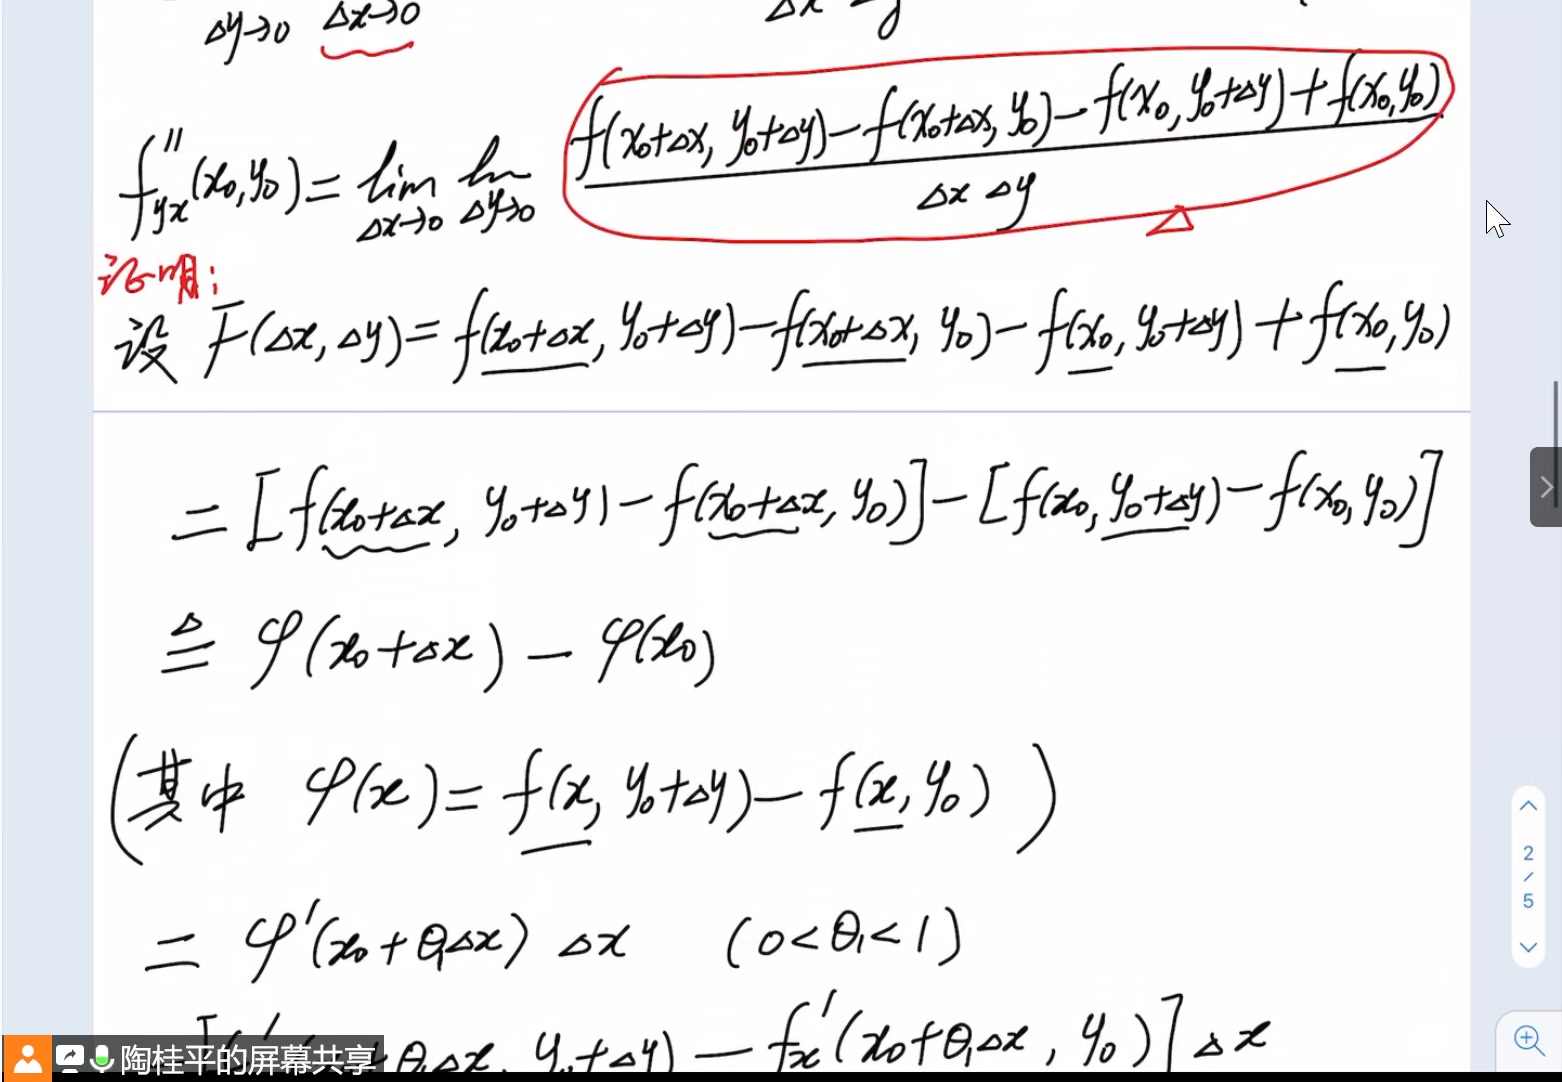 Δy→0 Δx→0 Δx
f''yx(x₀,y₀)= lim Δx→0 lim Δy→0 f(x₀+Δx, y₀+Δy)−f(x₀+Δx, y₀)−f(x₀, y₀+Δy)+f(x₀,y₀)
Δx Δy
证明:
设 F(Δx, Δy)= f(x₀+Δx, y₀+Δy)−f(x₀+Δx, y₀)−f(x₀, y₀+Δy)+f(x₀,y₀)
=[f(x₀+Δx, y₀+Δy)−f(x₀+Δx, y₀)]−[f(x₀, y₀+Δy)−f(x₀,y₀)]
≜ φ(x₀+Δx)−φ(x₀)
(其中 φ(x)= f(x, y₀+Δy)−f(x, y₀))
= φ'(x₀+θ₁Δx) Δx (0<θ₁<1)
θ₁Δx, y₀+Δy)−f'x(x₀+θ₁Δx, y₀)]Δx
陶桂平的屏幕共享
2
/
5